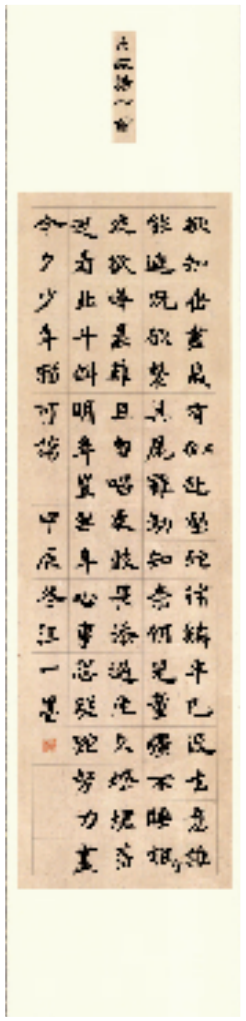 欲知垂盡歲有似赴壑蛇脩鱗半已沒去意誰
能遮況欲繫其尾雖勤知奈何兒童彊不睡相守
夜歡嘩晨雞且勿唱更鼓畏添撾坐久燈燼落
起看北斗斜明年豈無年心事恐蹉跎努力盡
今夕少年猶可誇 甲辰冬江一墨